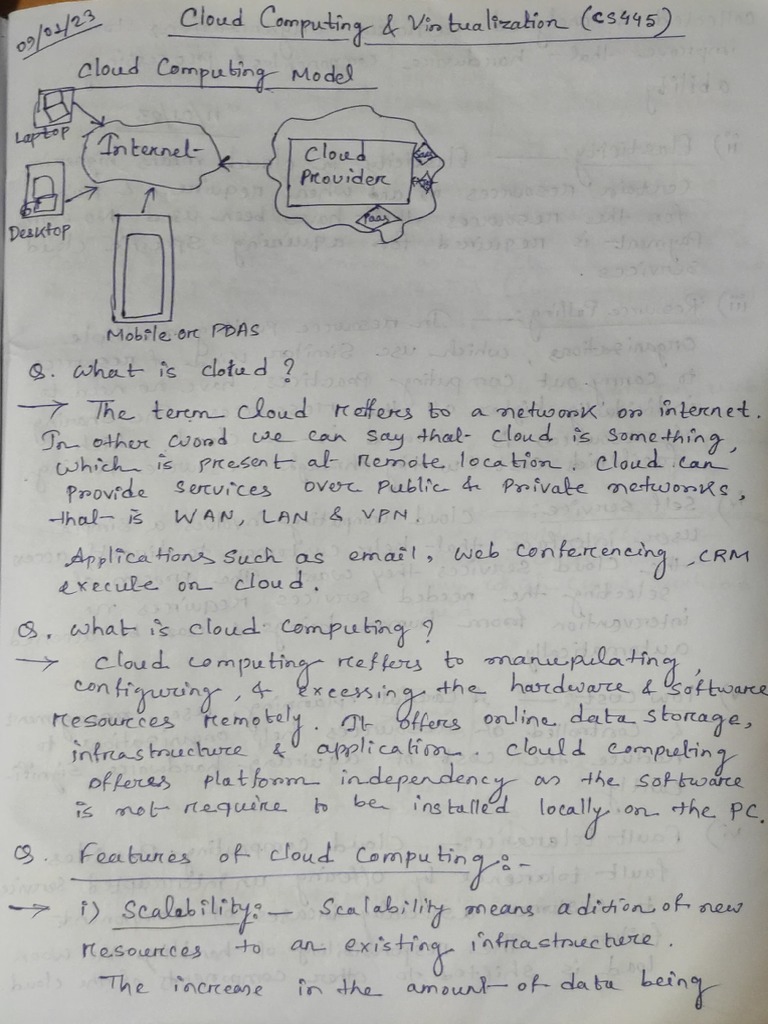 09/02/23
Cloud Computing & Virtualization (CS445)
Cloud Computing Model
Laptop
Internet
Cloud
Provider
Paas
Desktop
Mobile or PDAS
Q. What is cloud ?
→ The term cloud reffers to a network or internet.
In other word we can say that cloud is something,
which is present at remote location. Cloud can
provide services over Public & Private networks,
that is WAN, LAN & VPN.
Applications such as email, web conferencing, CRM
execute on cloud.
Q. What is cloud computing ?
→ Cloud computing reffers to manupulating,
configuring, & excessing the hardware & software
resources remotely. It offers online data storage,
infrastructure & application. Cloud computing
offeres platform independency as the software
is not require to be installed locally on the PC.
Q. Features of cloud computing :-
→ i) Scalability :- Scalability means adition of new
resources to an existing infrastructure.
The increase in the amount of data being